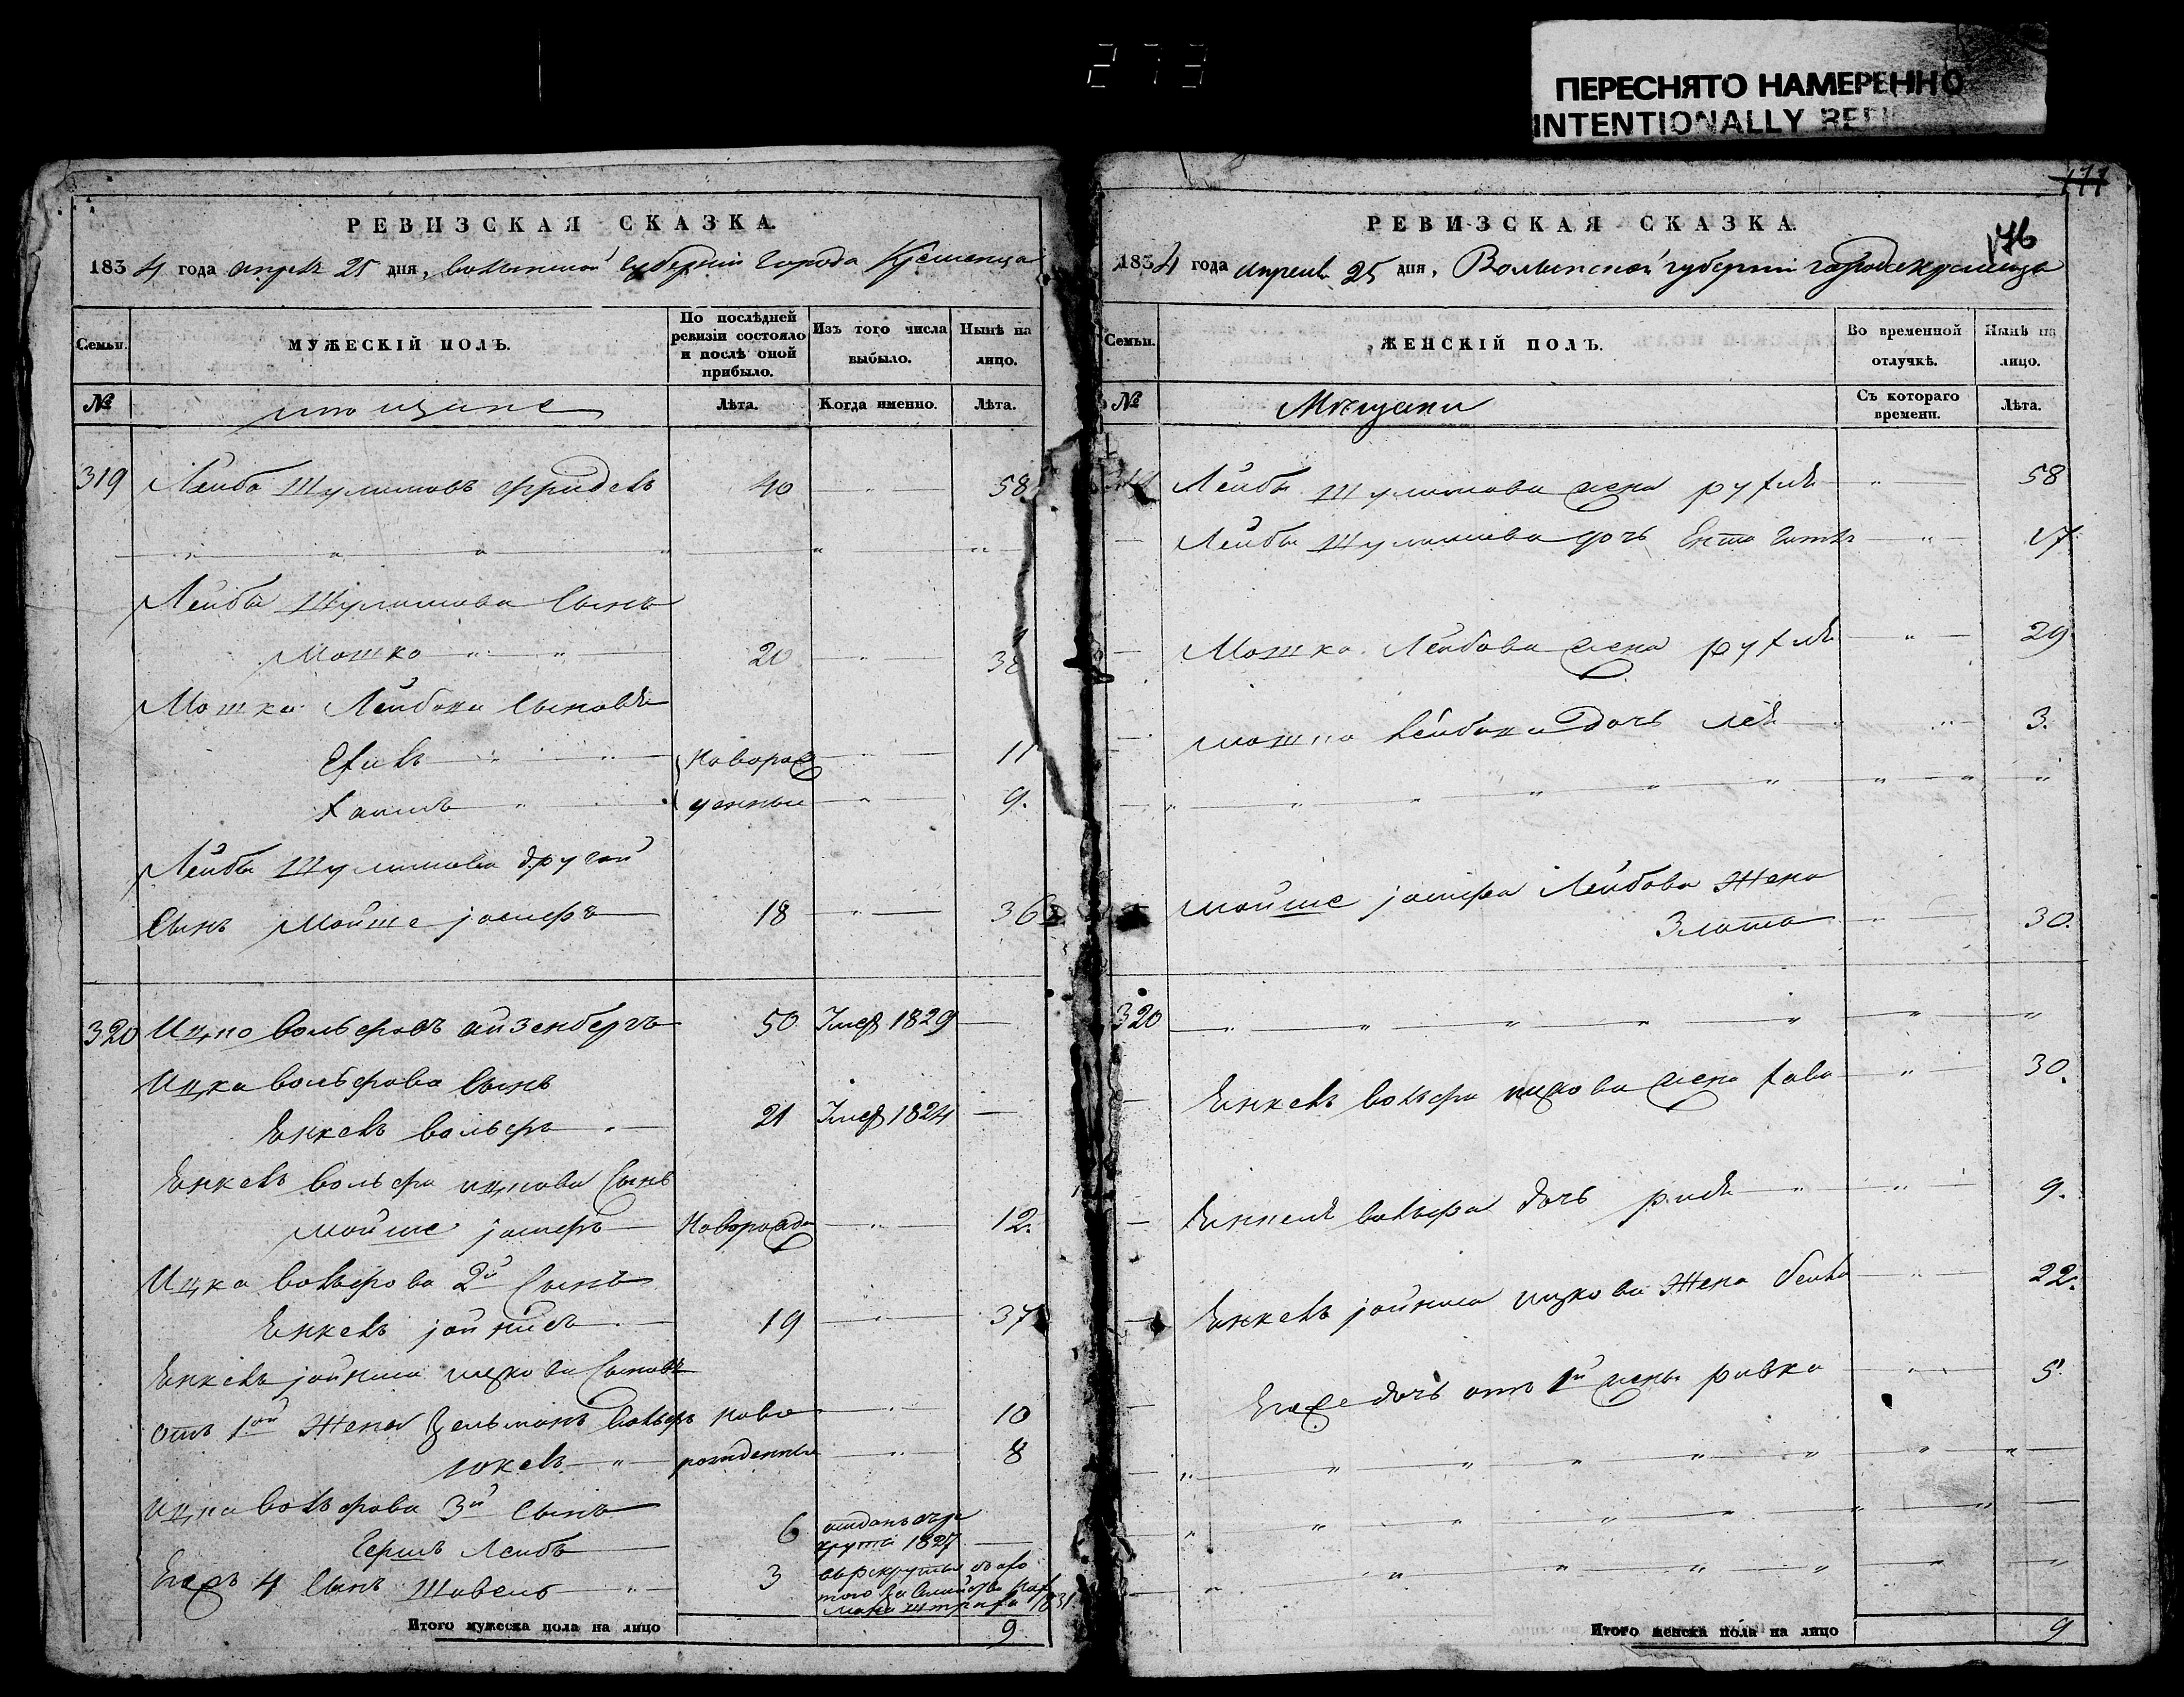 273
ПЕРЕСНЯТО НАМЕРЕННО
INTENTIONALLY
177
176
РЕВИЗСКАЯ СКАЗКА.
1834 года апреля 25 дня, волынской губерний города Кременца
Семьи. МУЖЕСКІЙ ПОЛЪ. По послѣдней ревизіи состояло и послѣ оной прибыло. Изъ того числа выбыло. Нынѣ на лицо.
№ Лѣта. Когда именно. Лѣта.
319 Лейба Шулимовъ фридель 40 58
Лейбы Шулимова Сынъ
Мошко 20 38
Мошка Лейбова Сыновья
Ехиль Новорож 11
Хаимъ денные 9.
Лейбы Шулимова другой
Сынъ Мойше иосифъ 18 36
320 Ицко вольфовъ айзенбергъ 50 Умер 1829
Ицка вольфова Сынъ
Янкель вольфъ 21 Умер 1824
Янкель вольфа ицкова Сынъ
мойше иосифъ Новорожде 12.
Ицка вольфова 2й Сынъ
Янкель иойнисъ 19 37
Янкель иойниса ицкова Сыновья
отъ 1ой Жены Зельманъ вольфъ ново 10
рожденные 8
ицка вольфова 3й Сынъ
Гершъ Лейбъ 6 отданъ 1827
Егожъ 4 Сынъ Шовель 3 1831
Итого мужеска пола на лицо 9
РЕВИЗСКАЯ СКАЗКА.
1834 года апреля 25 дня, Волынской губернии города кременца
Семьи. ЖЕНСКІЙ ПОЛЪ. Во временной отлучкѣ. Нынѣ на лицо.
№ Мещани Съ котораго времени. Лѣта.
Лейбы Шулимова жена рухля 58
Лейбы Шулимова дочь Ента 17
Мошка Лейбова жена рухля 29
мошка Лейбова дочь лея 3.
мойше иосифа Лейбова Жена
Злата 30.
320
Янкель вольфа ицкова жена хава 30.
Янкеля вольфа дочь 9.
Янкель иойниса ицкова Жена бейла 22.
Егоже дочь отъ 1й жены ривка 5
Итого женска пола на лицо 9